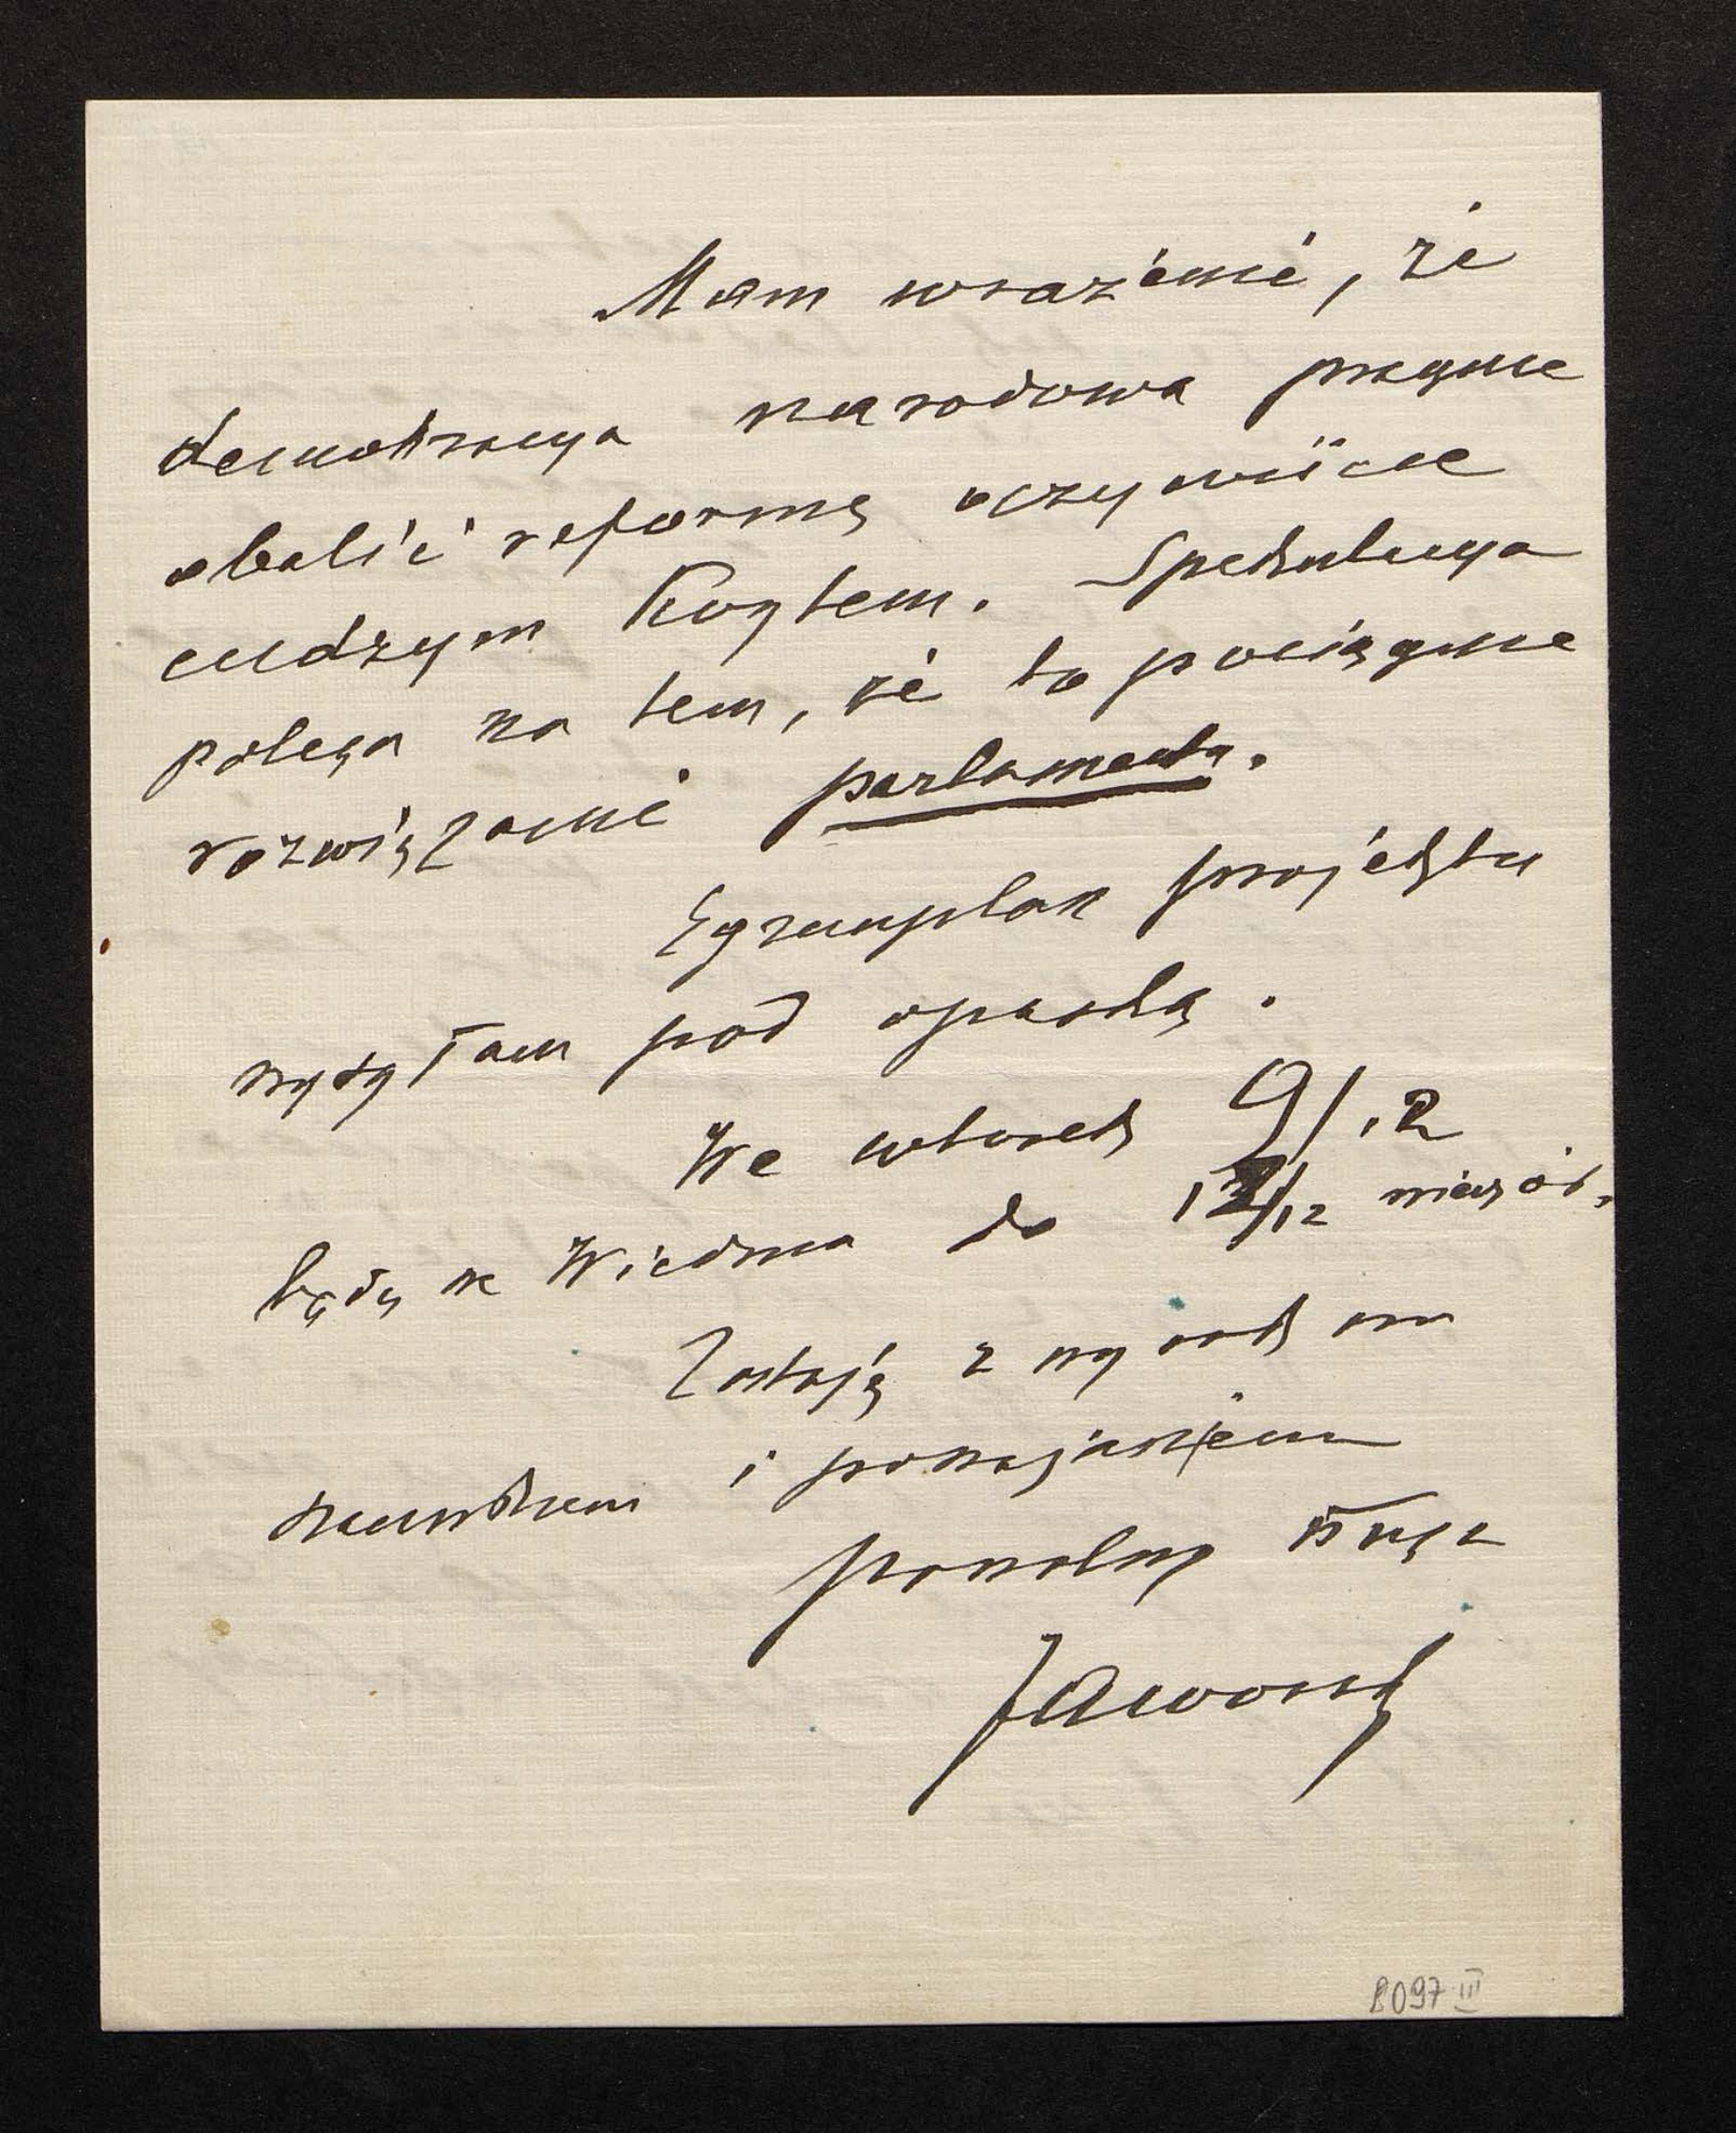 Mam wrażenie, że
demokracya narodowa pragnie
obalić reformę oczywiście
cudzym kosztem. Spekulacya
polega na tem, że to pociągnie
rozwiązanie parlamentu.
Egzemplarz projektu
wysyłam pod opaską.
We wtorek 9/12
będę w Wiedniu do 12/12 wieczór.
Zostaję z wysokim
szacunkiem i poważaniem
powolny sługa
Jaworski
8097 III